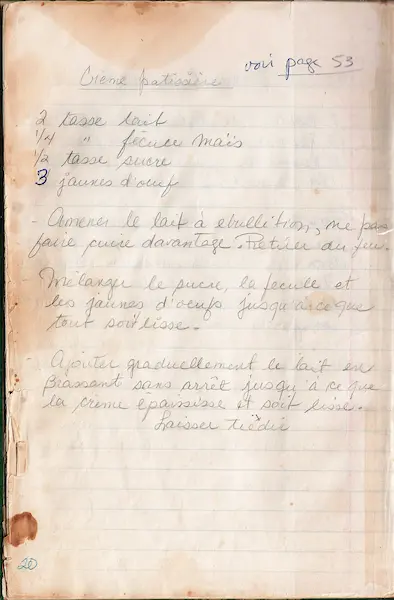 voir page 53
Crème patissière
2 tasse lait
1/4 " fécule maïs
1/2 tasse sucre
3 jaunes d'oeuf
- Amener le lait à ebullition, ne pas
faire cuire davantage. Retirer du feu.
- Mélanger le sucre, la fecule et
les jaunes d'oeufs jusqu'à ce que
tout soit lisse.
- Ajouter graduellement le lait en
Brassant sans arrêt jusqu'à ce que
la crème épaississe et soit lisse.
Laisser tiédir
20